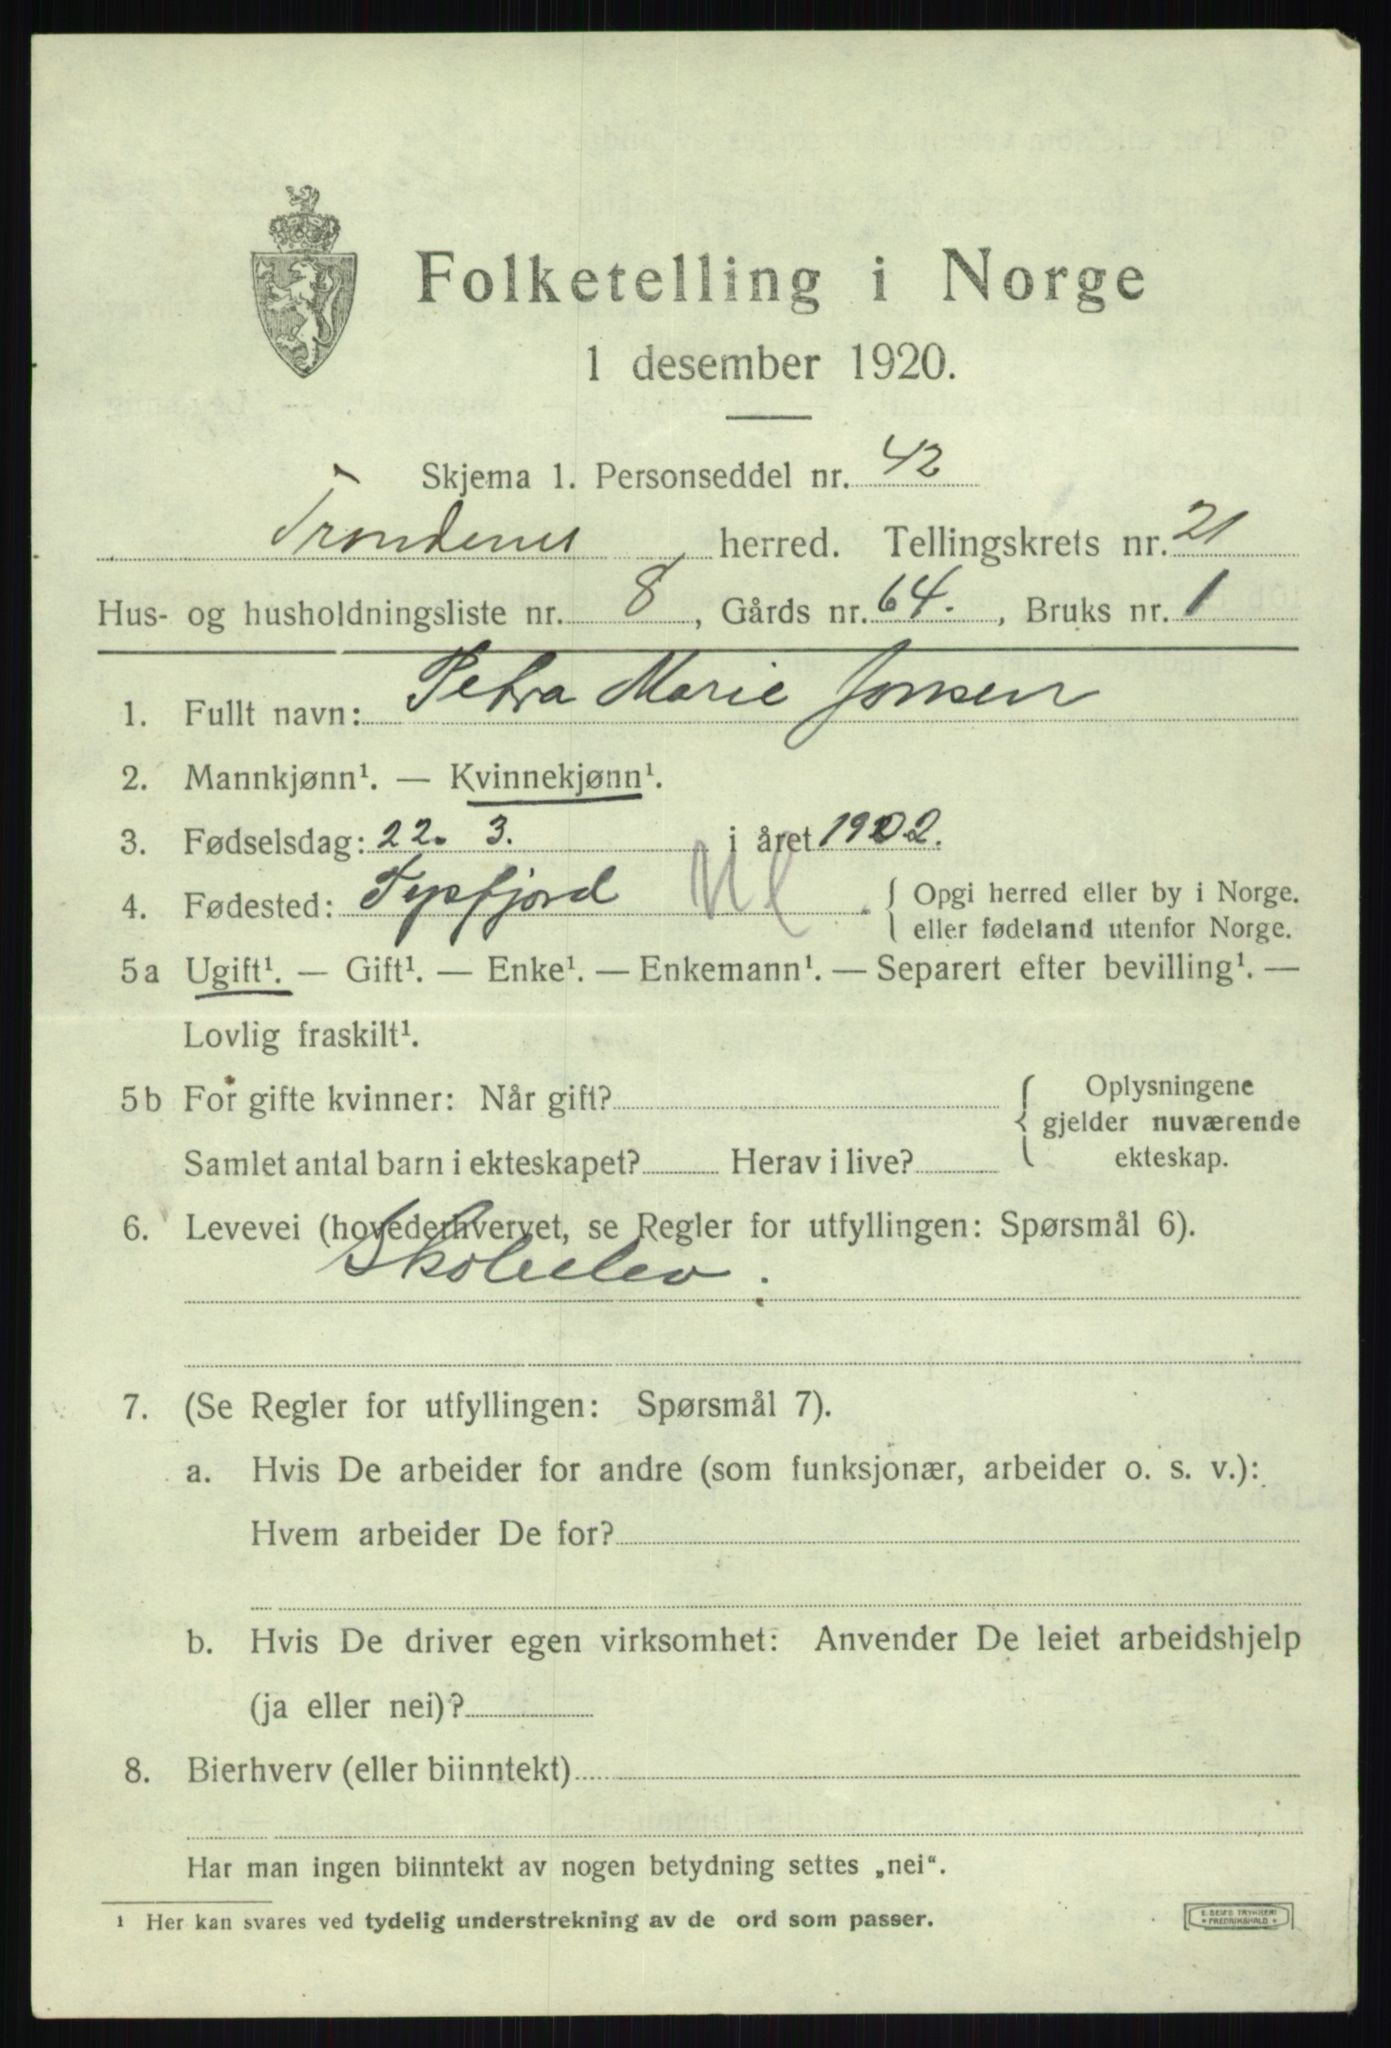 Folketelling i Norge
1 desember 1920.
Skjema 1. Personseddel nr. 42
Trondenes herred. Tellingskrets nr. 21
Hus- og husholdningsliste nr. 8, Gårds nr. 64., Bruks nr. 1
1. Fullt navn: Petra Marie Jonsen
2. Mannkjønn¹. — Kvinnekjønn¹.
3. Fødselsdag: 22. 3. i året 1902.
4. Fødested: Tysfjord Nl { Opgi herred eller by i Norge.
eller fødeland utenfor Norge.
5a Ugift¹. — Gift¹. — Enke¹. — Enkemann¹. — Separert efter bevilling¹. —
Lovlig fraskilt¹.
5b For gifte kvinner: Når gift? { Oplysningene
gjelder nuværende
Samlet antal barn i ekteskapet? Herav i live? ekteskap.
6. Levevei (hovederhvervet, se Regler for utfyllingen: Spørsmål 6).
Skoleelev.
7. (Se Regler for utfyllingen: Spørsmål 7).
a. Hvis De arbeider for andre (som funksjonær, arbeider o. s. v.):
Hvem arbeider De for?
b. Hvis De driver egen virksomhet: Anvender De leiet arbeidshjelp
(ja eller nei)?
8. Bierhverv (eller biinntekt)
Har man ingen biinntekt av nogen betydning settes „nei“.
¹ Her kan svares ved tydelig understrekning av de ord som passer.
E. SEM'S TRYKKERI
FREDRIKSHALD